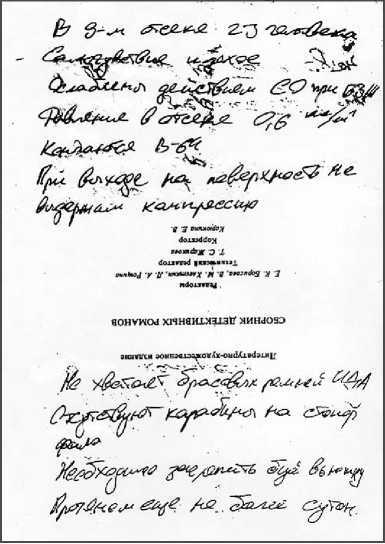 В 9-м отсеке 23 человека
Самочувствие плохое
Ослаблены действием СО при БЗЖ
Давление в отсеке 0,6 кг/м²
Кончаются В-64
При выходе на поверхность не
выдержим компрессию
Корюкина Е. В.
Корректор
Т. С. Жарикова
Технический редактор
Е. К. Борисова, В. М. Д. А. Рощина
Редакторы
СБОРНИК ДЕТЕКТИВНЫХ РОМАНОВ
Литературно-художественное издание
Не хватает брасовых ремней ИДА
Отсутствуют карабины на стопор
фала
Необходимо закрепить буй вьюшку
Протянем еще не более суток